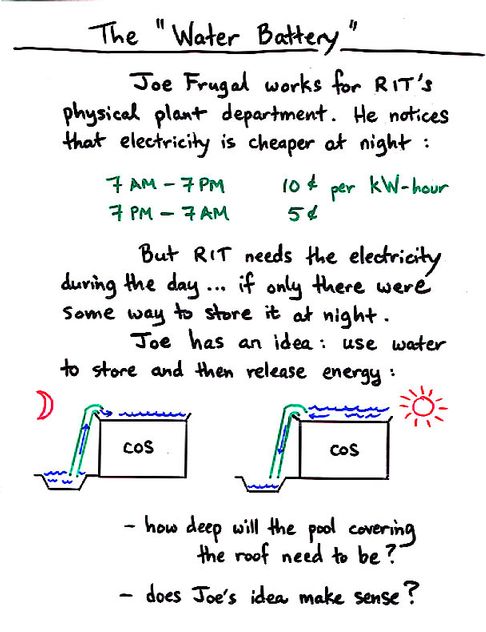 The "Water Battery"
Joe Frugal works for RIT's
physical plant department. He notices
that electricity is cheaper at night :
7 AM – 7 PM 10 ¢ per kW-hour
7 PM – 7 AM 5 ¢
But RIT needs the electricity
during the day ... if only there were
some way to store it at night.
Joe has an idea : use water
to store and then release energy :
COS COS
– how deep will the pool covering
the roof need to be?
– does Joe's idea make sense?